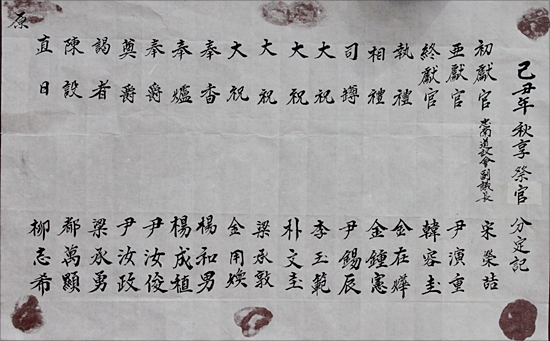 己丑年 秋享祭官 分定記
初獻官 忠南道敎會副議長 宋榮喆
亜獻官 尹演重
終獻官 韓容圭
執禮 金在燁
相禮 金鍾憲
司罇 尹錫辰
大祝 李玉範
大祝 朴文圭
大祝 梁承敦
大祝 金用煥
奉香 楊和男
奉爐 楊成植
奉爵 尹汝俊
奠爵 尹汝政
謁者 梁承勇
陳設 都萬顯
直日 柳志希
原